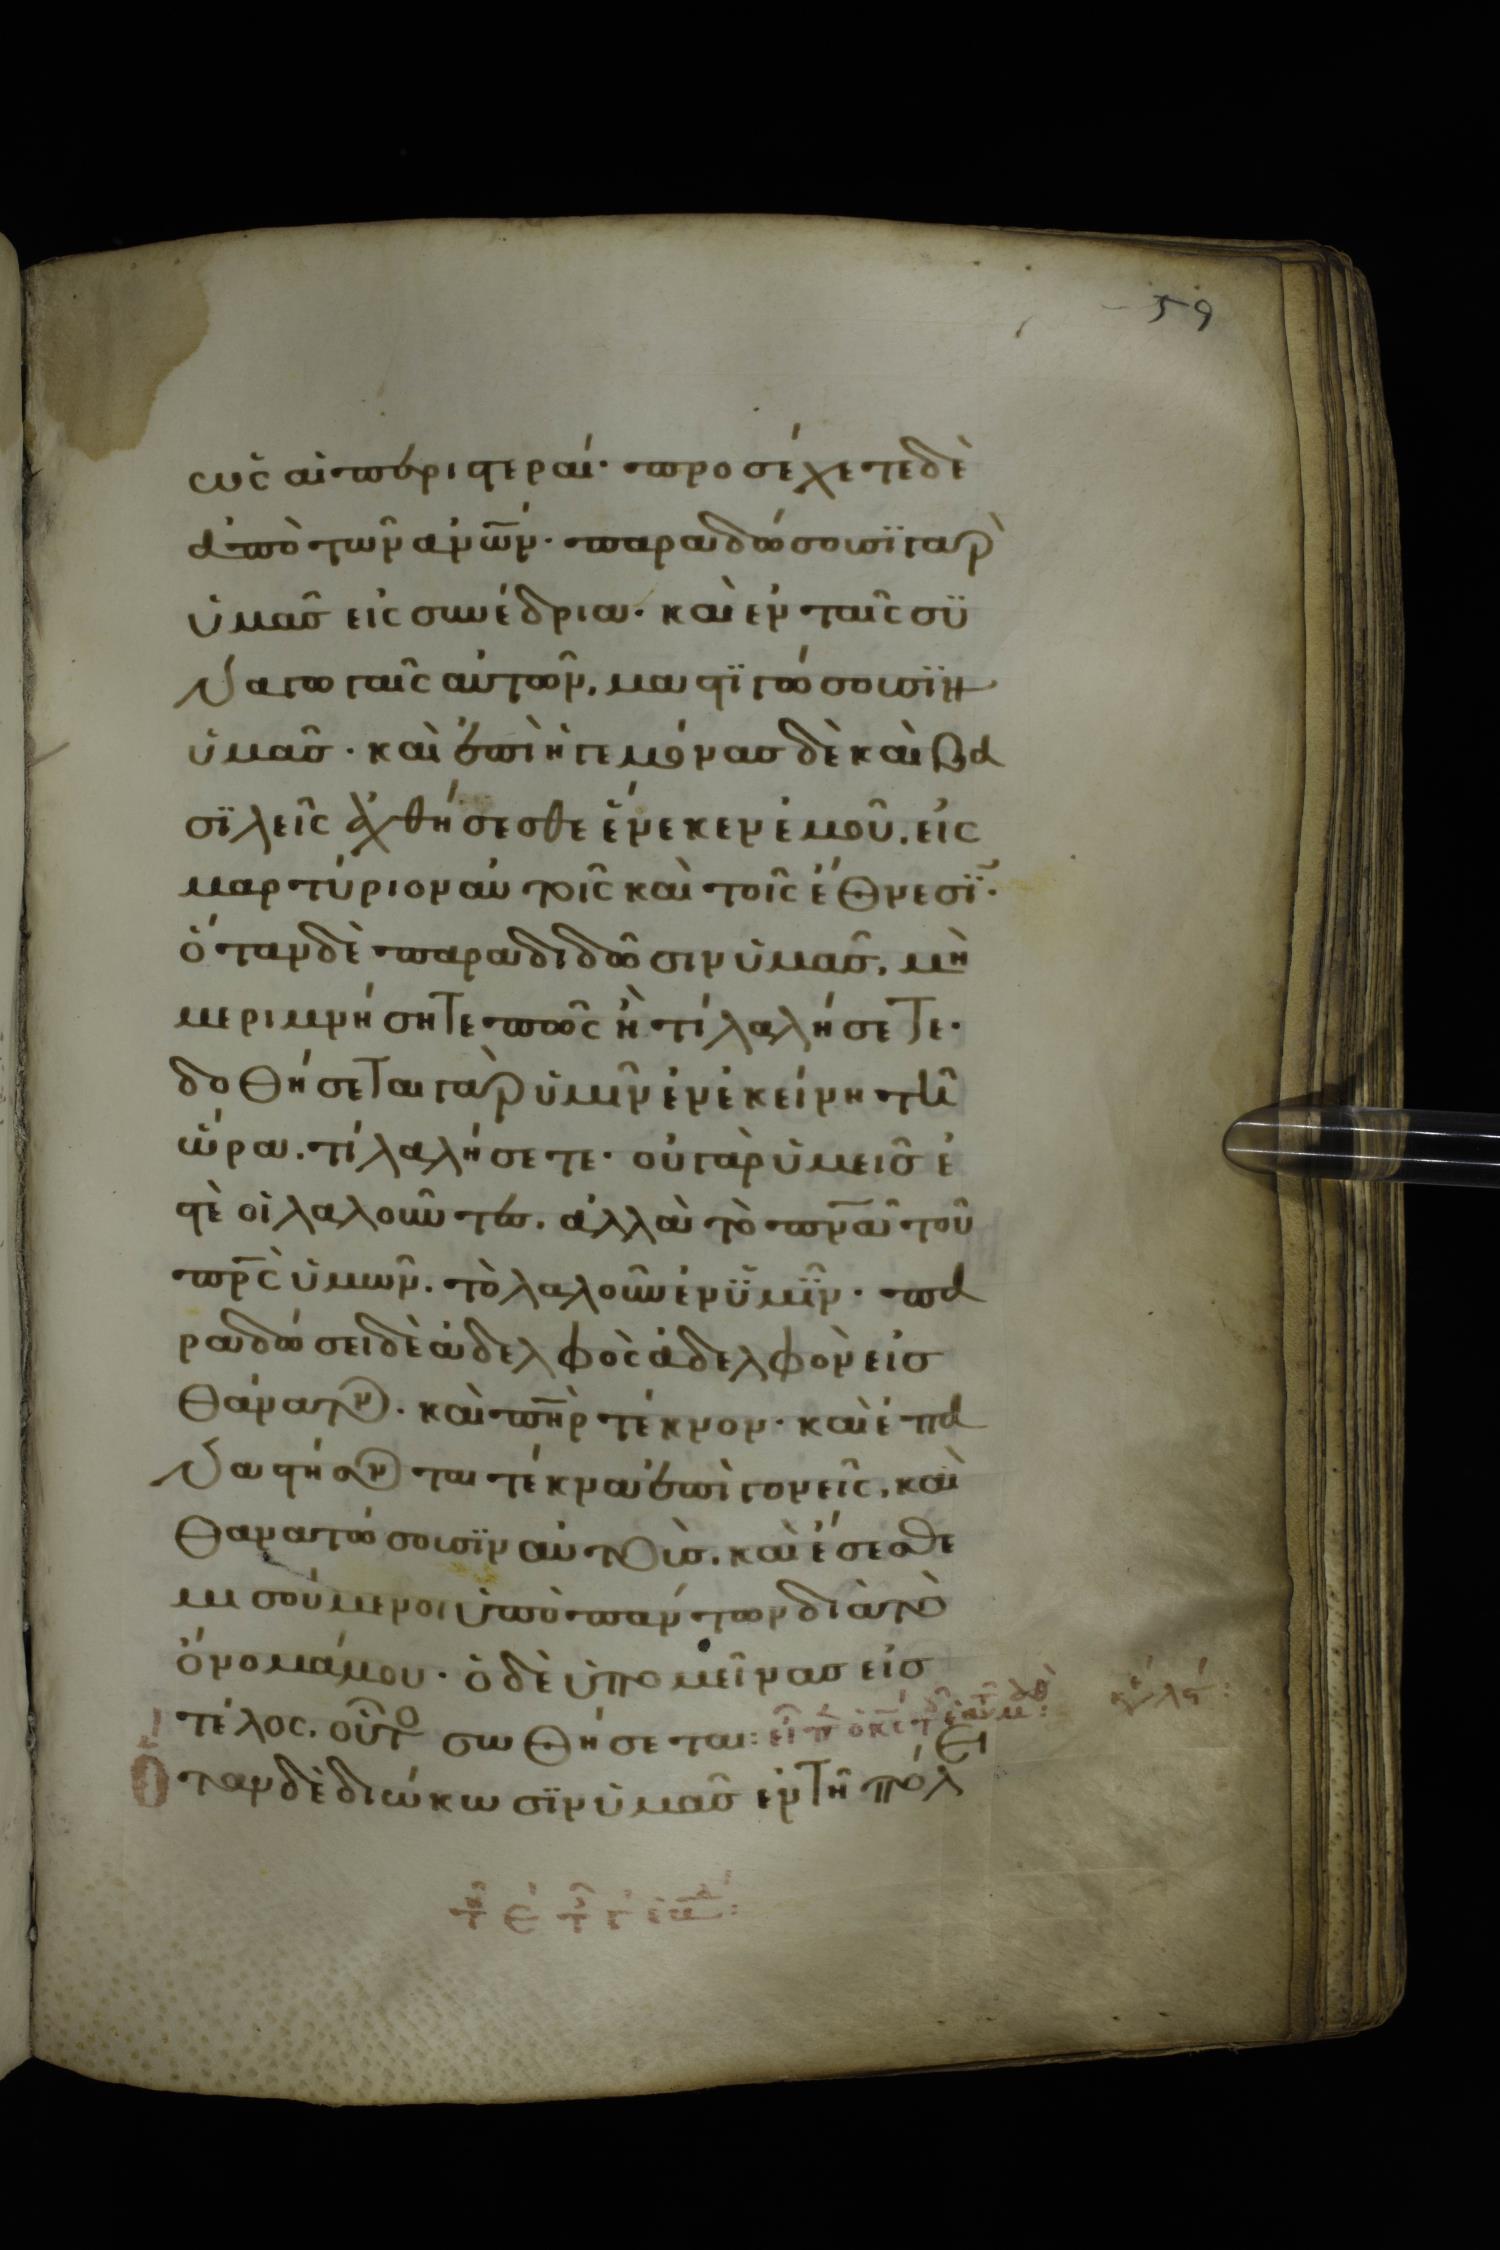 59
ως αἱ περιστεραί· προσέχετε δὲ
ἀπὸ τῶν ἀν̅ω̅ν· παραδώσουσϊ γὰρ
ὑμᾶς εἰς συνέδρια· καὶ ἐν ταῖς συ
ναγωγαῖς αὐτῶν, μαστϊγώσουσϊν
ὑμᾶς· καὶ ἐπὶ ἡγεμόνας δὲ καὶ βα
σϊλεῖς ἀχθήσεσθε ἕνεκεν ἐμοῦ, εἰς
μαρτύριον αὐτοῖς καὶ τοῖς ἔθνεσϊ·
ὅταν δὲ παραδιδῶσιν ὑμᾶς, μὴ
μεριμνήσητε πῶς ἢ τί λαλήσετε·
δοθήσεται γὰρ ὑμῖν ἐν ἐκείνη τῆ
ὥρα, τί λαλήσετε· οὐ γὰρ ὑμεῖς ἐ
στὲ οἱ λαλοῦντες, ἀλλὰ τὸ πν̅α̅ τοῦ
πρ̅ς̅ ὑμῶν, τὸ λαλοῦν ἐν ὑμῖν· πα
ραδώσει δὲ ἀδελφὸς ἀδελφὸν εἰς
θάνατον· καὶ πη̅ρ̅ τέκνον· καὶ ἐπα
ναστήσονται τέκνα ἐπὶ γονεῖς, καὶ
θανατώσουσϊν αὐτούς, καὶ ἔσεσθε
μισούμενοι ὑπὸ πάντων διὰ τὸ
ὄνομά μου· ὁ δὲ ὑπομείνας εἰς
τέλος, οὗτο σωθήσεται:
Ὅταν δὲ διώκωσϊν ὑμᾶς ἐν τῆ πόλει